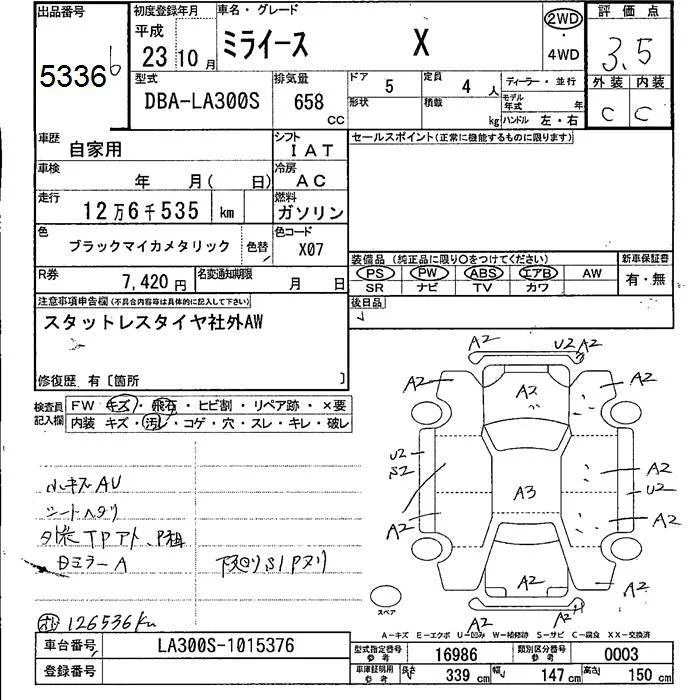 出品番号 初度登録年月 車名・グレード 2WD 評価点
5336 平成 23 10月 ミライース X ・ 4WD 3.5
型式 排気量 ドア 5 定員 4人 ディーラー・並行 外装 内装
DBA-LA300S 658 CC 形状 積載 kg モデル年式 年 ハンドル 左・右 C C
車歴 自家用 シフト IAT セールスポイント(正常に機能するものに限ります)
車検 年 月( 日) 冷房 AC
走行 12万6千535 km 燃料 ガソリン
色 ブラックマイカメタリック 色替 色コード X07
装備品(純正品に限り○をつけてください) 新車保証書
R券 7,420円 名変通知期限 月 日 PS PW ABS エアB AW 有・無
SR ナビ TV カワ
注意事項申告欄(不具合内容等は具体的に記入して下さい) 後日品
スタットレスタイヤ社外AW
修復歴 有〔箇所 〕
検査員記入欄 FW キズ・飛石・ヒビ割・リペア跡・×要
内装 キズ・汚レ・コゲ・穴・スレ・キレ・破レ
A2 U2 A2
A2 A2 A2
U2 S2 A2 U2
A3
A2 A2
A2 A2
A2 A2
小キズAU
シートヘタリ
外装TPアト、
ミラーA 下廻りSIPヌリ
126536Km
スペア
A-キズ E-エクボ U-凹み W-補修跡 S-サビ C-腐食 XX-交換済
車台番号 LA300S-1015376 型式指定番号 参考 16986 類別区分番号 参考 0003
登録番号 車庫証明用 参考 長さ 339cm 幅 147cm 高さ 150cm